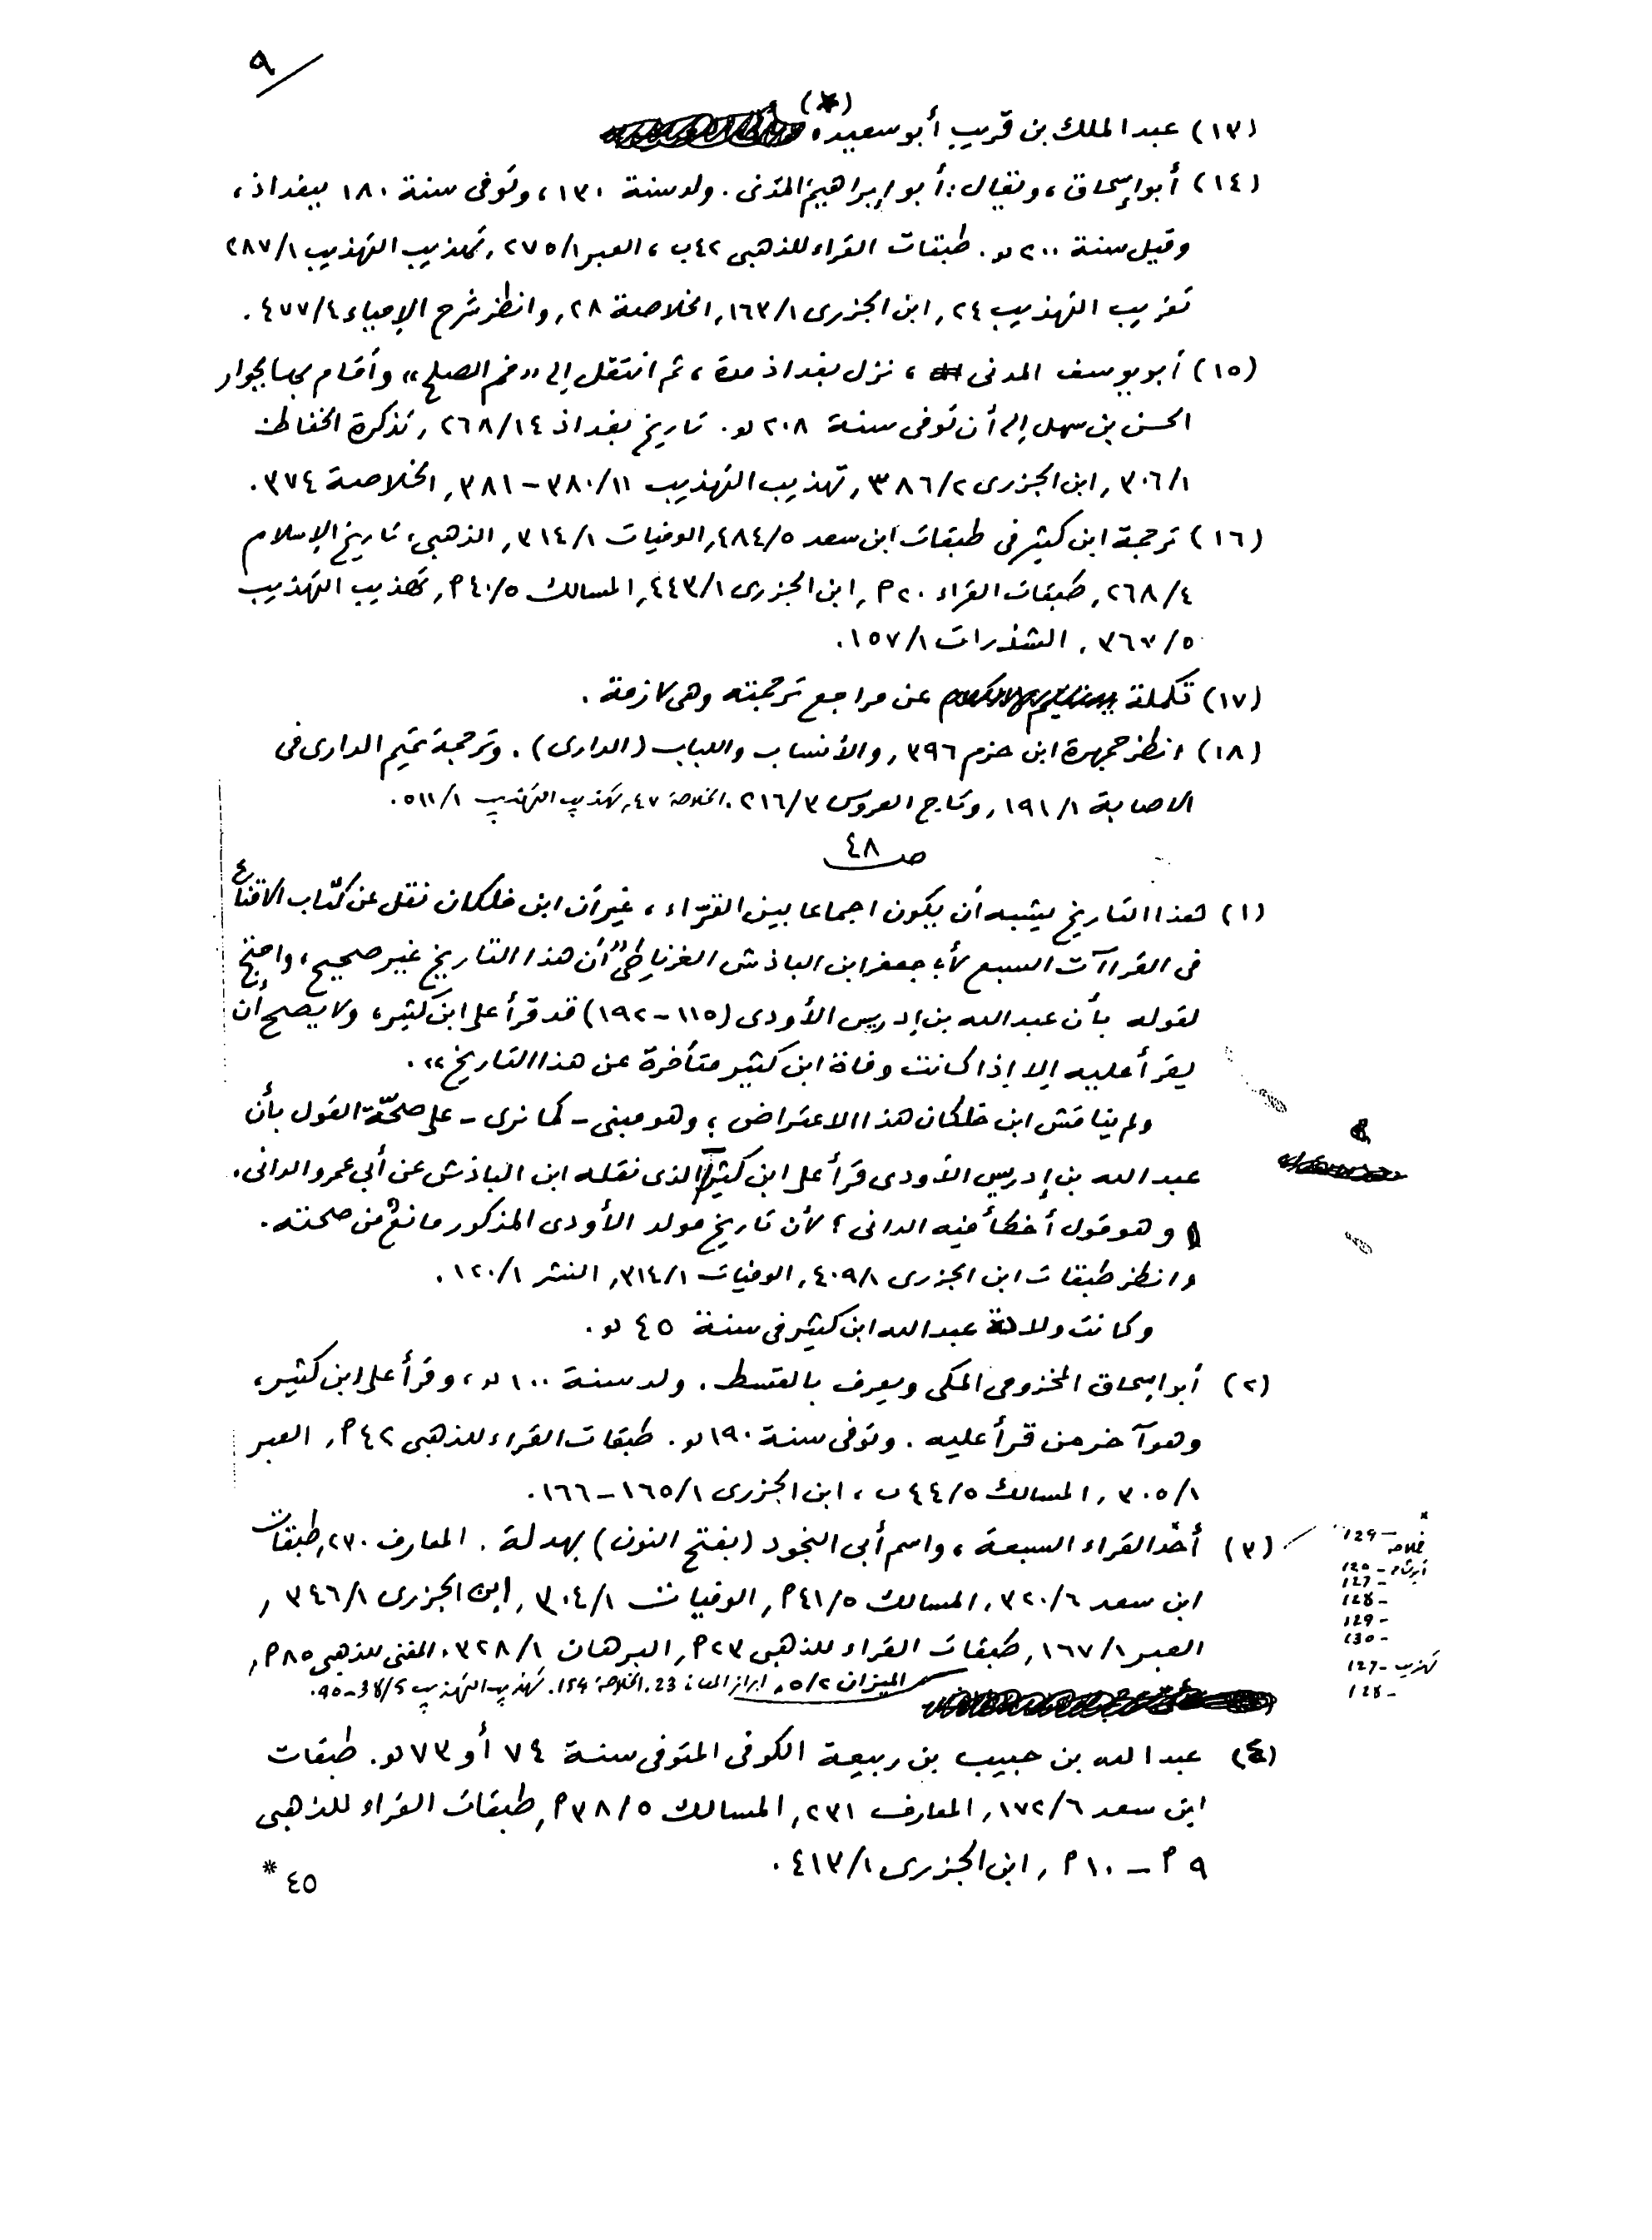 ٩
(١٣) عبد الملك بن قريب أبو سعيد. (*)
(١٤) أبو إسحاق، ويقال: أبو إبراهيم المدني. ولد سنة ١٣٠، وتوفى سنة ١٨٠ ببغداد،
وقيل سنة ٢٠٠ هـ. طبقات القراء للذهبى ٤٢ ب، العبر ٢٧٥/١, تهذيب التهذيب ٢٨٧/١
تقريب التهذيب ٢٤, ابن الجزرى ١٦٣/١, الخلاصة ٢٨, وانظر شرح الإحياء ٤٧٧/٤.
(١٥) أبو يوسف المدنى، نزل بغداد مدة، ثم انتقل إلى «فم الصلح» وأقام بها بجوار
الحسن بن سهل إلى أن توفى سنة ٢٠٨ هـ. تاريخ بغداد ٢٦٨/١٤, تذكرة الحفاظ
٣٠٦/١, ابن الجزرى ٣٨٦/٢, تهذيب التهذيب ٣٨٠/١١ - ٣٨١, الخلاصة ٣٧٤.
(١٦) ترجمة ابن كثير فى طبقات ابن سعد ٤٨٤/٥, الوفيات ٣١٤/١, الذهبى، تاريخ الإسلام
٢٦٨/٤, طبقات القراء ٢٠ م, ابن الجزرى ٤٤٣/١, المسالك ٤٠/٥ م, تهذيب التهذيب
٣٦٧/٥, الشذرات ١٥٧/١.
(١٧) تكملة عن مراجع ترجمته وهى لازمة.
(١٨) انظر جمهرة ابن حزم ٣٩٦, والأنساب واللباب (الدارى). وترجمة تميم الدارى فى
الاصابة ١٩١/١, وتاج العروس ٢١٦/٣. الخلاصة ٤٧, تهذيب التهذيب ٥١١/١.
صـ ٤٨
(١) هذا التاريخ يشبه أن يكون اجماعا بين القرّاء، غير أن ابن خلكان نقل عن كتاب الاقناع
فى القراآت السبع لأبى جعفر ابن الباذش الغرناطى "أن هذا التاريخ غير صحيح، واحتج
لقوله بأن عبد الله بن إدريس الأودى (١١٥ - ١٩٢) قد قرأ على ابن كثير، ولا يصح أن
يقرأ عليه إلا إذا كانت وفاة ابن كثير متأخرة عن هذا التاريخ".
ولم يناقش ابن خلكان هذا الاعتراض؛ وهو مبنى - كما نرى - على صحّة القول بأن
عبد الله بن إدريس الأودى قرأ على ابن كثير الذى نقله ابن الباذش عن أبي عمرو الدانى.
وهو قول أخطأ فيه الدانى؛ لأن تاريخ مولد الأودى المذكور مانع من صحته.
وانظر طبقات ابن الجزرى ٤٠٩/١, الوفيات ٣١٤/١, النشر ١٢٠/١.
وكانت ولادة عبد الله ابن كثير فى سنة ٤٥ هـ.
(٢) أبو إسحاق المخزومى المكى ويعرف بالقسط. ولد سنة ١٠٠ هـ، وقرأ على ابن كثير،
وهو آخر من قرأ عليه. وتوفى سنة ١٩٠ هـ. طبقات القراء للذهبى ٤٢ م, العبر
٣٠٥/١, المسالك ٤٤/٥ ب، ابن الجزرى ١٦٥/١ - ١٦٦.
(٣) أحد القراء السبعة، واسم أبى النجود (بفتح النون) بهدلة. المعارف ٢٣٠, طبقات
ابن سعد ٣٢٠/٦, المسالك ٤١/٥ م, الوفيات ٣٠٤/١, ابن الجزرى ٣٤٦/١,
العبر ١٦٧/١, طبقات القراء للذهبى ٢٣ م, البرهان ٣٢٨/١, المغنى للذهبى ٨٥ م,
الميزان ٥/٢, ابراز المعانى 23, الخلاصة 154. تهذيب التهذيب
(٤) عبد الله بن حبيب بن ربيعة الكوفى المتوفى سنة ٧٤ أو ٧٣ هـ. طبقات
ابن سعد ١٧٢/٦, المعارف ٢٣١, المسالك ٣٨/٥ م, طبقات القراء للذهبى
٩ م - ١٠ م, ابن الجزرى ٤١٣/١.
* ٤٥